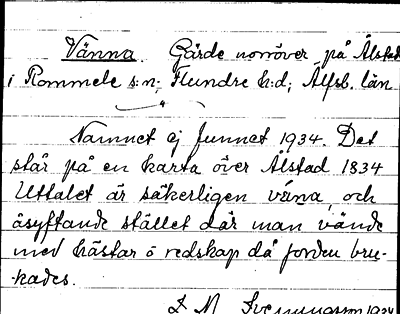 Vänna. Gärde norröver på Ålstad
i Rommele s:n; Flundre h:d; Älfsb. län
Namnet ej funnet 1934. Det
står på en karta över Ålstad 1834
Uttalet är säkerligen väna, och
åsyftande stället där man vände
med hästar o redskap då jorden bru-
kades.
1934